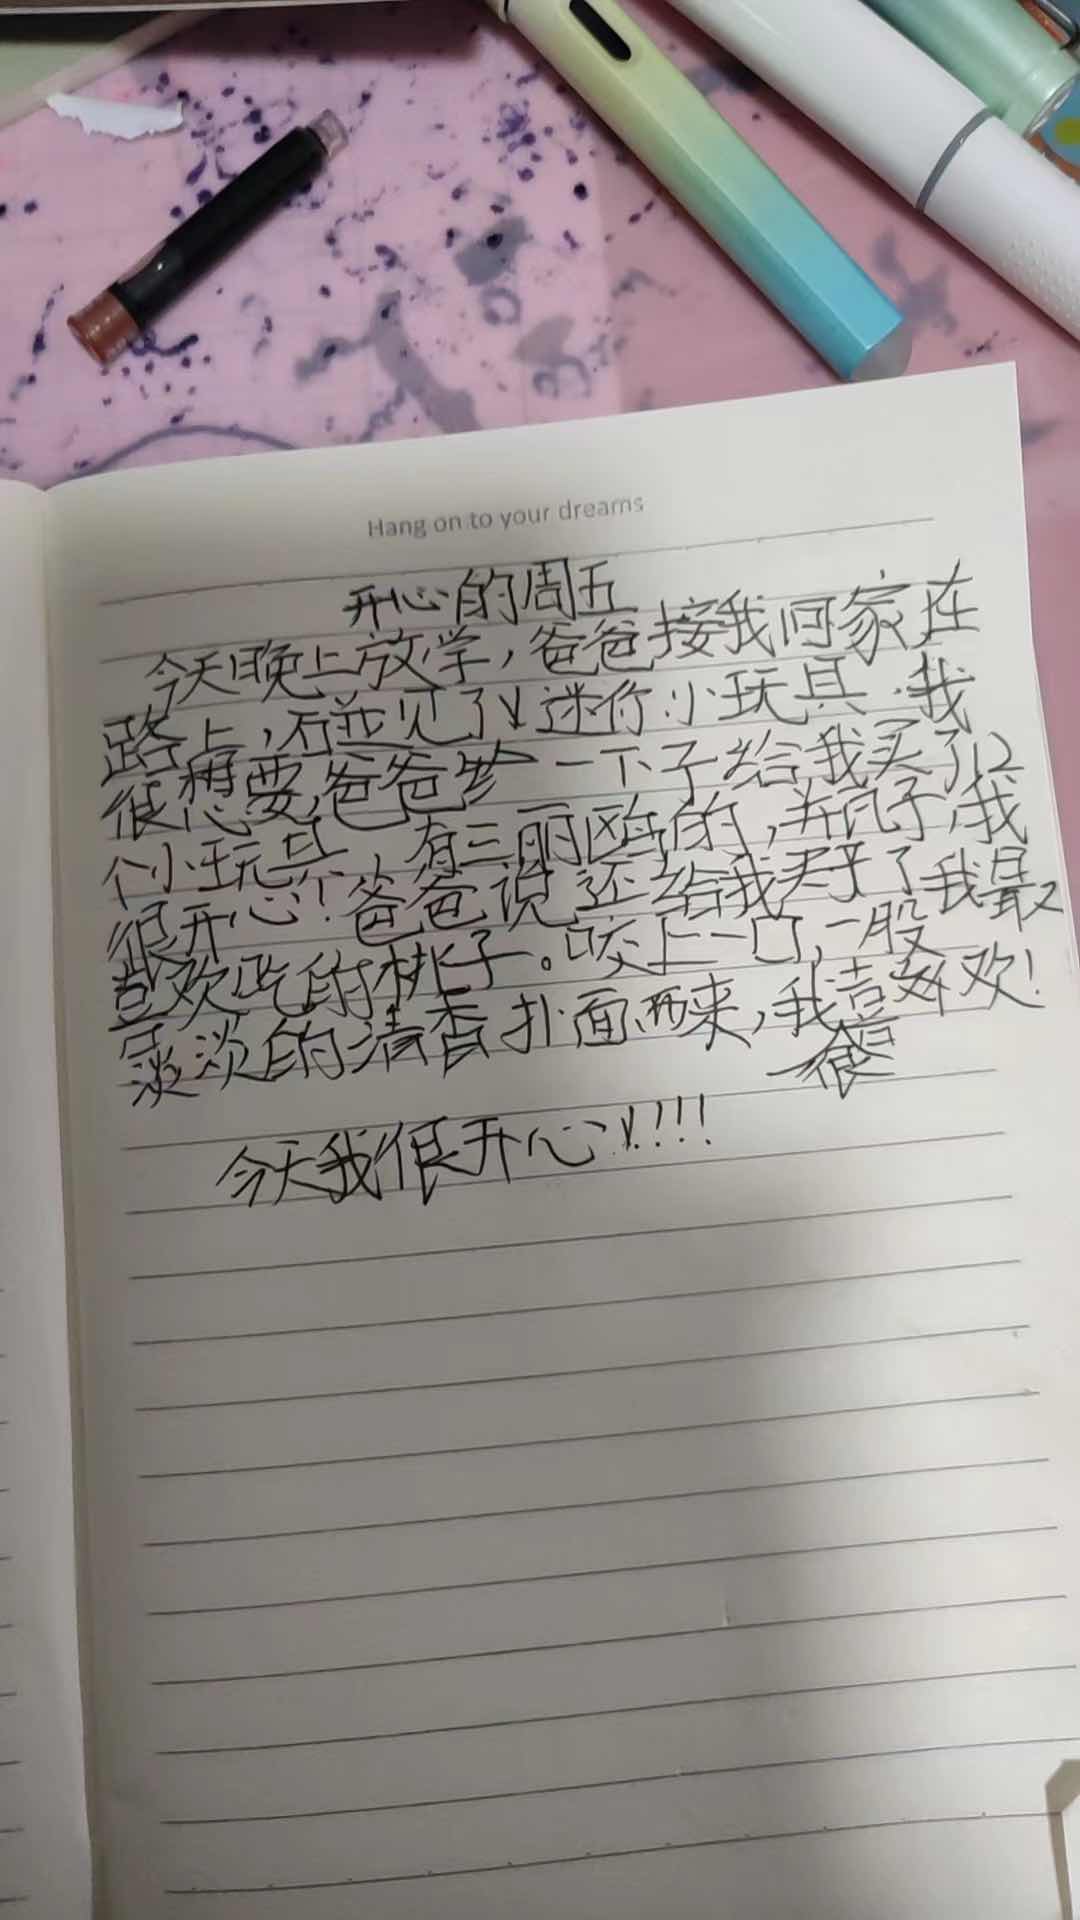 Hang on to your dreams
开心的周五
今天晚上放学，爸爸接我回家在
路上，碰见了迷你小玩具.我
很想要,爸爸 一下子给我买了12
个小玩具，有三丽鸥的，
很开心！爸爸说还给我买了我最
喜欢吃的桃子。咬上一口，一股
淡淡的清香扑面而来，我喜欢！
很
今天我很开心!!!!